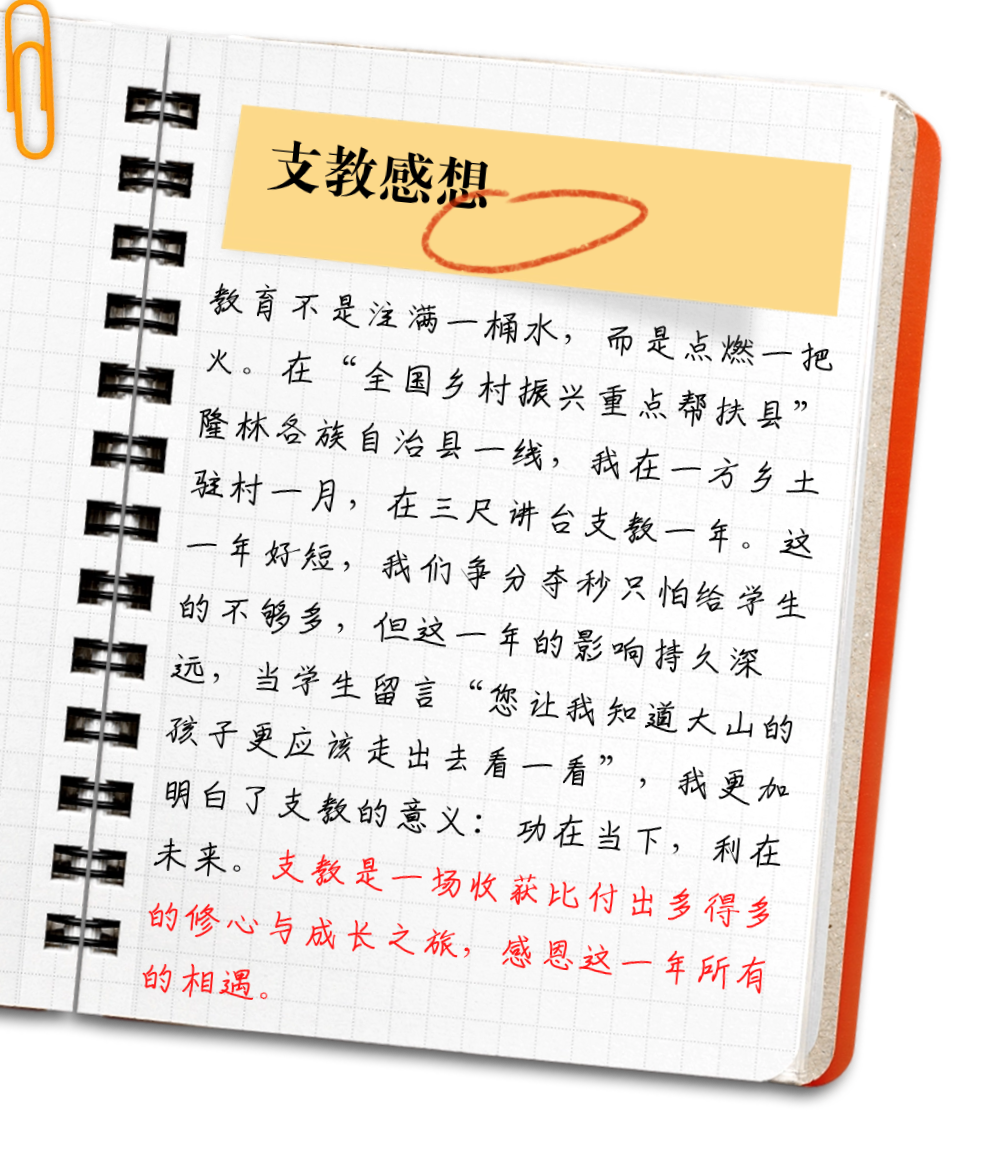 支教感想
教育不是注满一桶水，而是点燃一把
火。在“全国乡村振兴重点帮扶县”
隆林各族自治县一线，我在一方乡土
驻村一月，在三尺讲台支教一年。这
一年好短，我们争分夺秒只怕给学生
的不够多，但这一年的影响持久深
远，当学生留言“您让我知道大山的
孩子更应该走出去看一看”，我更加
明白了支教的意义：功在当下，利在
未来。支教是一场收获比付出多得多
的修心与成长之旅，感恩这一年所有
的相遇。